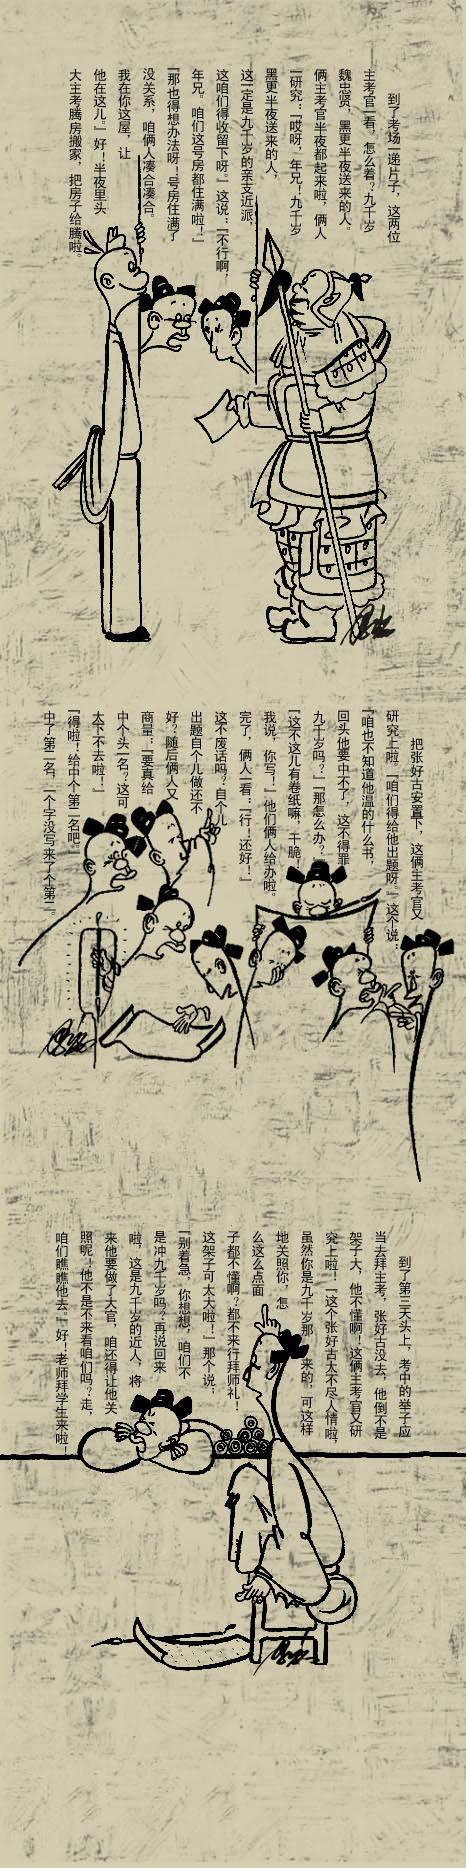 到了考场一递片子，这两位
主考官一看，怎么着？九千岁
魏忠贤，黑更半夜送来的人。
俩主考官半夜都起来啦，俩人
一研究：「哎呀，年兄！九千岁
黑更半夜送来的人，
这一定是九千岁的亲支近派，
这咱们得收留下呀。」这说：「不行啊，
年兄。咱们这号房都住满啦！」
「那也得想办法呀！号房住满了
没关系，咱俩人凑合凑合。
我在你这屋，让
他在这儿。」好！半夜里头
大主考腾房搬家，把房子给腾啦。
把张好古安置下，这俩主考官又
研究上啦。「咱们得给他出题呀。」这个说：
「咱也不知道他温的什么书，
回头他要中不了，这不得罪
九千岁吗？」「那怎么办？」
「这不这儿有卷纸嘛，干脆！
我说，你写！」他们俩人给办啦。
完了，俩人一看：「行！还好！」
这不废话吗？自个儿
出题自个儿做还不
好？随后俩人又
商量：「要真给
中个头一名？这可
太下不去啦！」
「得啦！给中个第二名吧。」
中了第二名，一个字没写来了个第二。
到了第三天头上，考中的举子应
当去拜主考，张好古没去，他倒不是
架子大，他不懂啊！这俩主考官又研
究上啦！「这个张好古太不尽人情啦，
虽然你是九千岁那 来的，可这样
地关照你，怎
么这么点面
子都不懂啊？都不来行拜师礼！
这架子可太大啦！」那个说：
「别着急，你想想，咱们不
是冲九千岁吗？再说回来
啦，这是九千岁的近人，将
来他要做了大官，咱还得让他关
照呢！他不是不来看咱们吗？走，
咱们瞧瞧他去。」好！老师拜学生来啦！